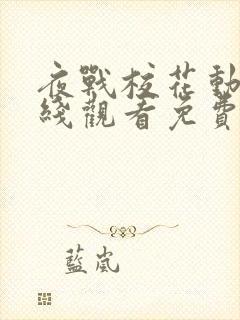 夜戰校花動
綫觀看免費
藍嵐